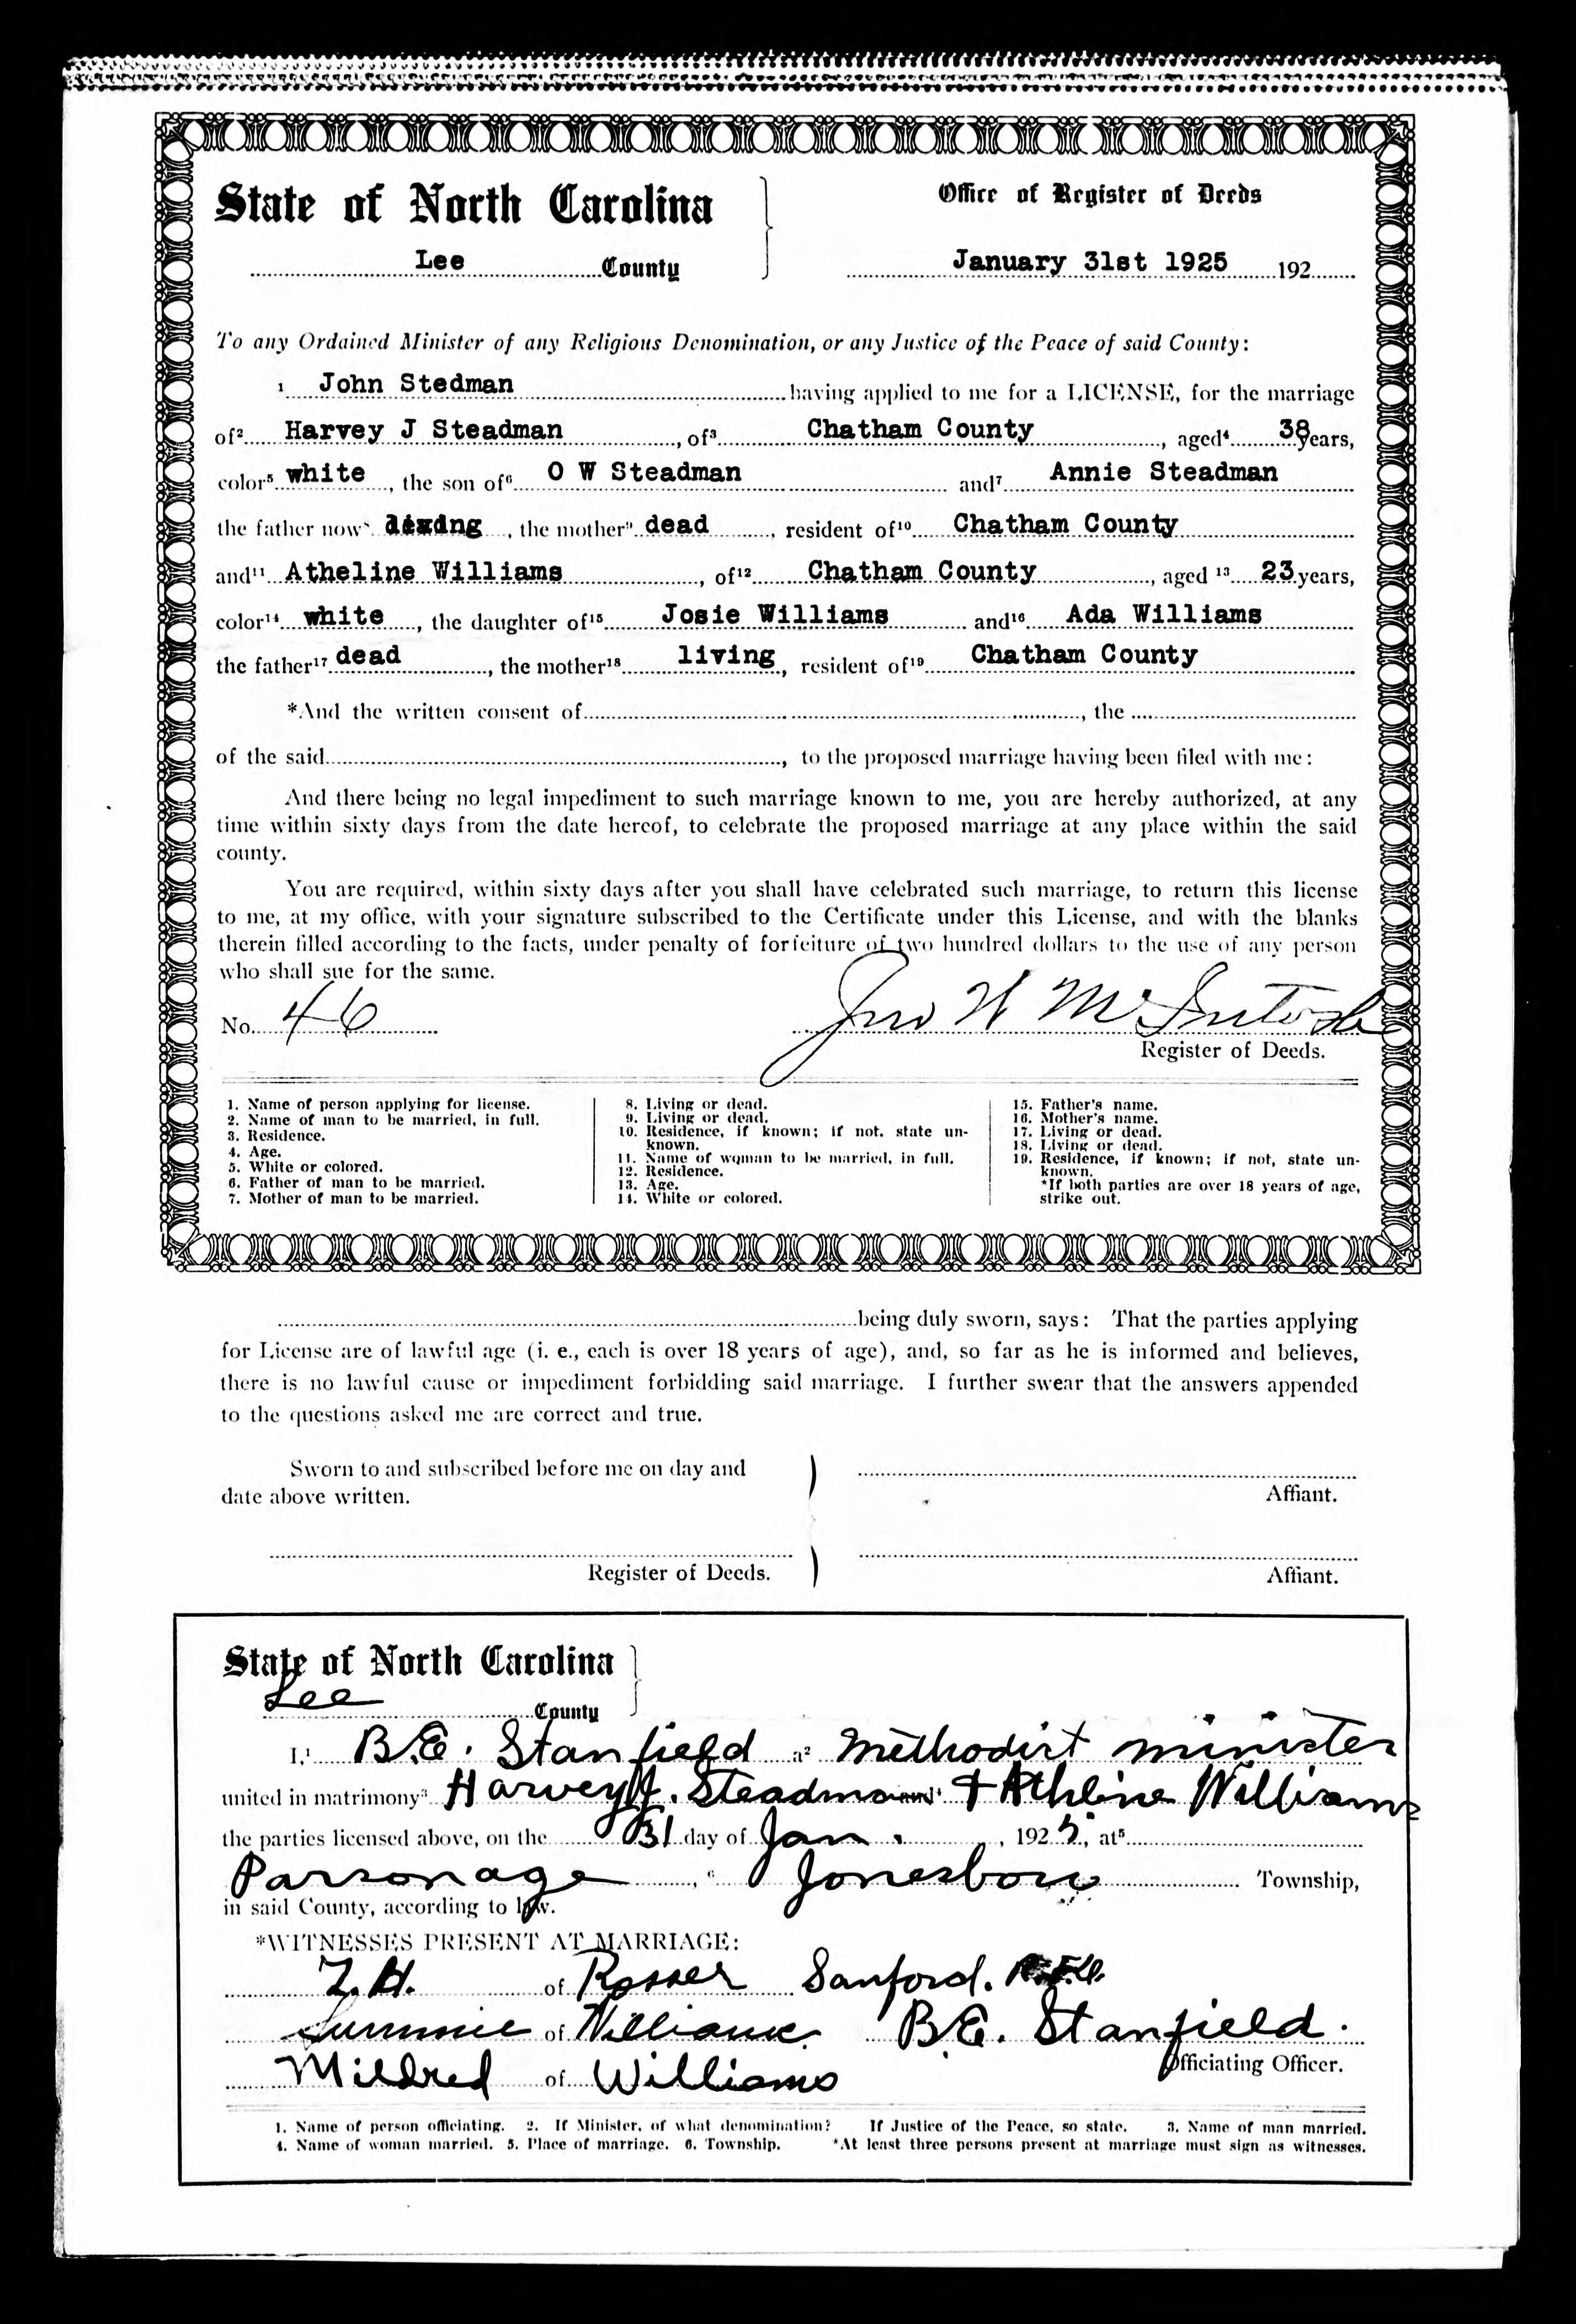 State of North Carolina
Office of Register of Deeds
Lee County
January 31st 1925 192
To any Ordained Minister of any Religious Denomination, or any Justice of the Peace of said County:
1 John Stedman having applied to me for a LICENSE, for the marriage
of2 Harvey J Steadman, of3 Chatham County, aged4 38 years,
color5 white, the son of6 O W Steadman and7 Annie Steadman
the father now8, the mother9 dead, resident of10 Chatham County
and11 Atheline Williams, of12 Chatham County, aged 13 23 years,
color14 white, the daughter of15 Josie Williams and16 Ada Williams
the father17 dead, the mother18 living, resident of19 Chatham County
*And the written consent of, the
of the said, to the proposed marriage having been filed with me:
And there being no legal impediment to such marriage known to me, you are hereby authorized, at any
time within sixty days from the date hereof, to celebrate the proposed marriage at any place within the said
county.
You are required, within sixty days after you shall have celebrated such marriage, to return this license
to me, at my office, with your signature subscribed to the Certificate under this License, and with the blanks
therein filled according to the facts, under penalty of forfeiture of two hundred dollars to the use of any person
who shall sue for the same.
No. 46 Jno W McIntosh
Register of Deeds.
1. Name of person applying for license.
2. Name of man to be married, in full.
3. Residence.
4. Age.
5. White or colored.
6. Father of man to be married.
7. Mother of man to be married.
8. Living or dead.
9. Living or dead.
10. Residence, if known; if not, state un-
known.
11. Name of woman to be married, in full.
12. Residence.
13. Age.
14. White or colored.
15. Father's name.
16. Mother's name.
17. Living or dead.
18. Living or dead.
19. Residence, if known; if not, state un-
known.
*If both parties are over 18 years of age,
strike out.
being duly sworn, says: That the parties applying
for License are of lawful age (i. e., each is over 18 years of age), and, so far as he is informed and believes,
there is no lawful cause or impediment forbidding said marriage. I further swear that the answers appended
to the questions asked me are correct and true.
Sworn to and subscribed before me on day and
date above written.
Affiant.
Register of Deeds.
Affiant.
State of North Carolina
Lee County
I,1 B.E. Stanfield a2 Methodist minister
united in matrimony3 Harvey J. Steadman and4 + Athline Williams
the parties licensed above, on the 31 day of Jan., 1925, at5
Parsonage, 6 Jonesboro Township,
in said County, according to law.
*WITNESSES PRESENT AT MARRIAGE:
of Rosser Sanford.
of Williams B.E. Stanfield.
Mildred of Williams Officiating Officer.
1. Name of person officiating. 2. If Minister, of what denomination? If Justice of the Peace, so state. 3. Name of man married.
4. Name of woman married. 5. Place of marriage. 6. Township. *At least three persons present at marriage must sign as witnesses.